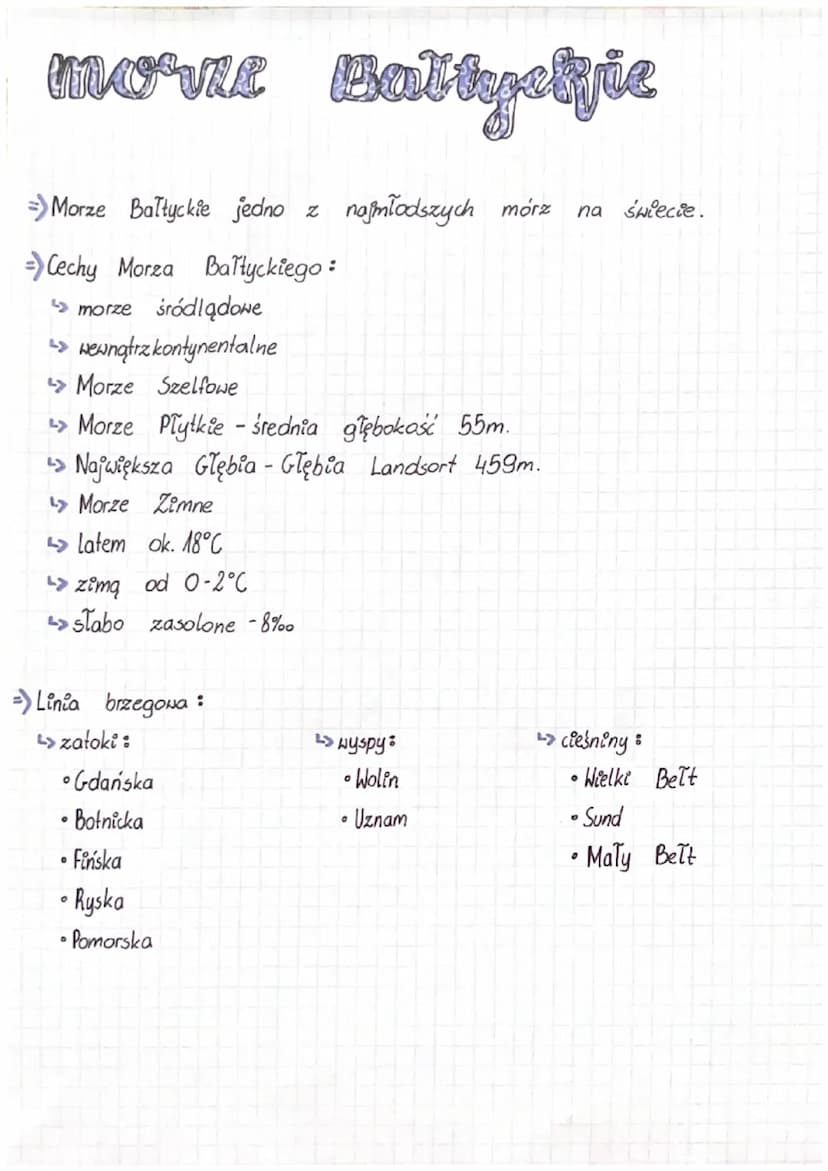 morze Bałtyckie
=> Morze Bałtyckie jedno z najmłodszych mórz na świecie.
=> Cechy Morza Bałtyckiego:
↳ morze śródlądowe
↳ wewnątrzkontynentalne
↳ Morze Szelfowe
↳ Morze Płytkie - średnia głębokość 55m.
↳ Największa Głębia - Głębia Landsort 459m.
↳ Morze Zimne
↳ latem ok. 18°C
↳ zimą od 0-2°C
↳ słabo zasolone - 8‰
=> Linia brzegowa:
↳ zatoki: ↳ wyspy: ↳ cieśniny:
• Gdańska • Wolin • Wielki Bełt
• Botnicka • Uznam • Sund
• Fińska • Mały Bełt
• Ryska
• Pomorska